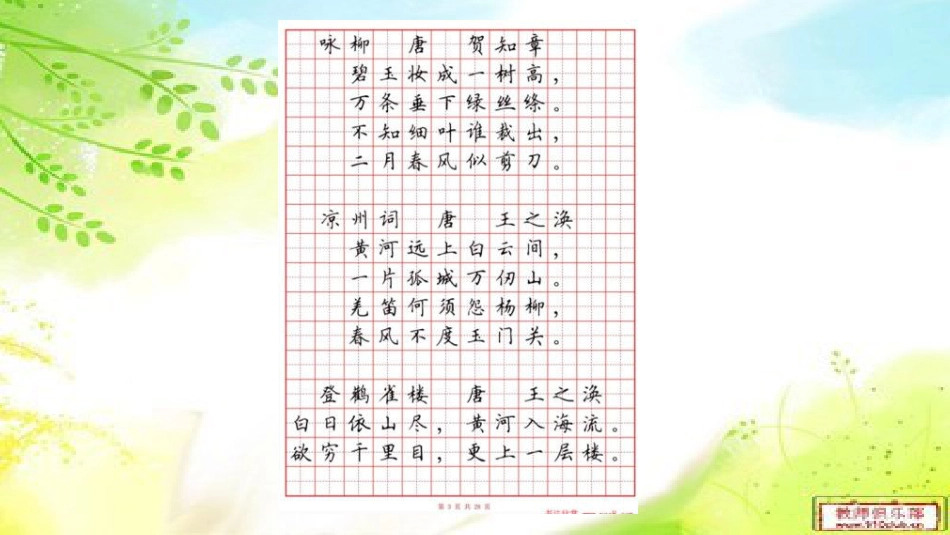 咏柳 唐 贺知章
碧玉妆成一树高，
万条垂下绿丝绦。
不知细叶谁裁出，
二月春风似剪刀。
凉州词 唐 王之涣
黄河远上白云间，
一片孤城万仞山。
羌笛何须怨杨柳，
春风不度玉门关。
登鹳雀楼 唐 王之涣
白日依山尽，黄河入海流。
欲穷千里目，更上一层楼。
第 3 页 共 28 页
教师俱乐部